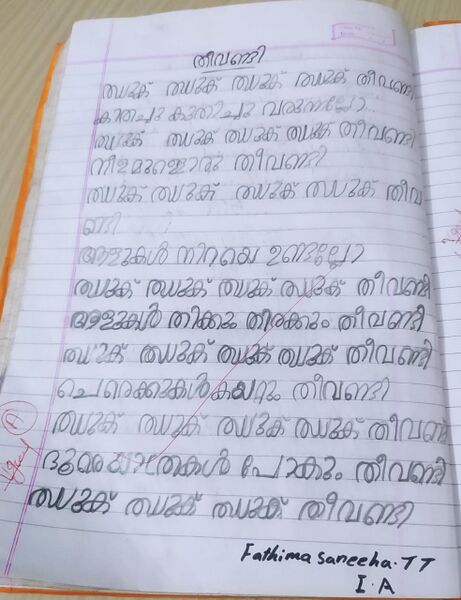 തീവണ്ടി
ഝുക് ഝുക് ഝുക് ഝുക് തീവണ്ടി
കുതിച്ചു കുതിച്ചു വരുന്നല്ലോ...
ഝുക് ഝുക് ഝുക് ഝുക് തീവണ്ടി
നീളമുള്ളൊരു തീവണ്ടി
ഝുക് ഝുക് ഝുക് ഝുക് തീവ
ണ്ടി
ആളുകൾ നിറയെ ഉണ്ടല്ലോ
ഝുക് ഝുക് ഝുക് ഝുക് തീവണ്ടി
ആളുകൾ തിക്കും തിരക്കും തീവണ്ടി
ഝുക് ഝുക് ഝുക് ഝുക് തീവണ്ടി
ചരക്കുകൾ കയറ്റും തീവണ്ടി
ഝുക് ഝുക് ഝുക് ഝുക് തീവണ്ടി
ദൂരെ യാത്രകൾ പോകും തീവണ്ടി
ഝുക് ഝുക് ഝുക് തീവണ്ടി
A
Good
Fathima Saneeha.TT
I.A